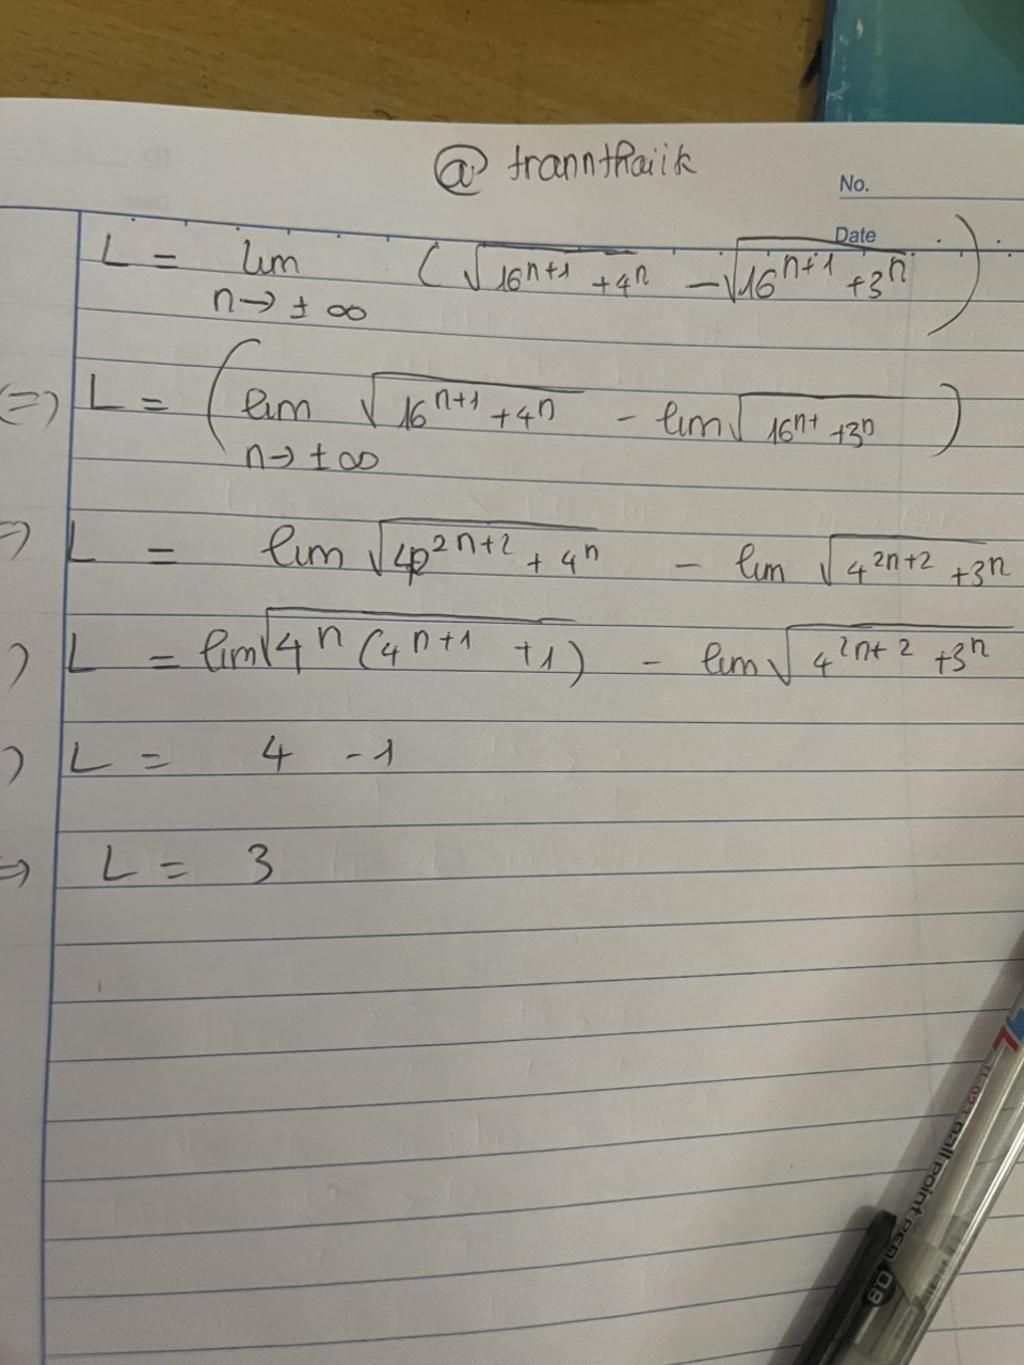 @ trannthaiik
No.
Date
L = lim n→ ±∞ (√(16^(n+1) +4^n) − √(16^(n+1) +3^n))
(=) L = (lim n→ ±∞ √(16^(n+1) +4^n) - lim √(16^(n+) +3^n))
=) L = lim √(4^(2n+2) + 4^n) - lim √(4^(2n+2) +3^n)
) L = lim √(4^n (4^(n+1) +1)) - lim √(4^(2n+2) +3^n)
) L = 4 -1
=) L = 3
TL-023 Ball point pen 0.8